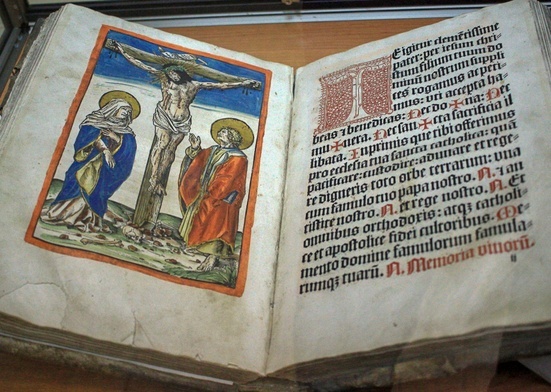 TEigitur clementissime
pater: per iesum chri-
stum filium tuum do
minū nostrum suppli
ces rogamus ac peti-
mus: uti accepta ha-
beas ⁊ benedicas: Hec do✠na: Hec
mu✠nera: Hec san✠cta sacrificia il
libata. Inprimis que tibi offerimus
pro ecclesia tua sancta catholica: quā
pacificare: custodire: adunare et rege-
re digneris toto orbe terrarum: vna
cum famulo tuo papa nostro .N. ⁊ an
tistite nostro .N. et rege nostro .N. Et
omnibus orthodoxis: atqꝫ catholi-
ce et apostolice fidei cultoribus. Me-
mento domine famulorum famula-
rumqꝫ tuarū. N. Memoria viuorū.